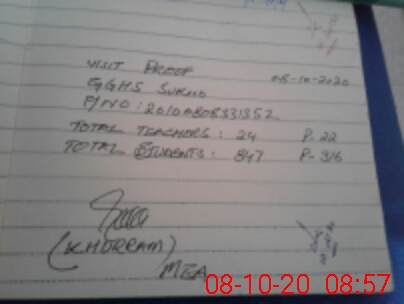 VISIT PROOF 08-10-2020
GGHS
P/NO: 20100808331352
TOTAL TEACHERS: 24 P-22
TOTAL STUDENTS: 847 P-316
(KHURRAM)
MEA
08-10-20 08:57